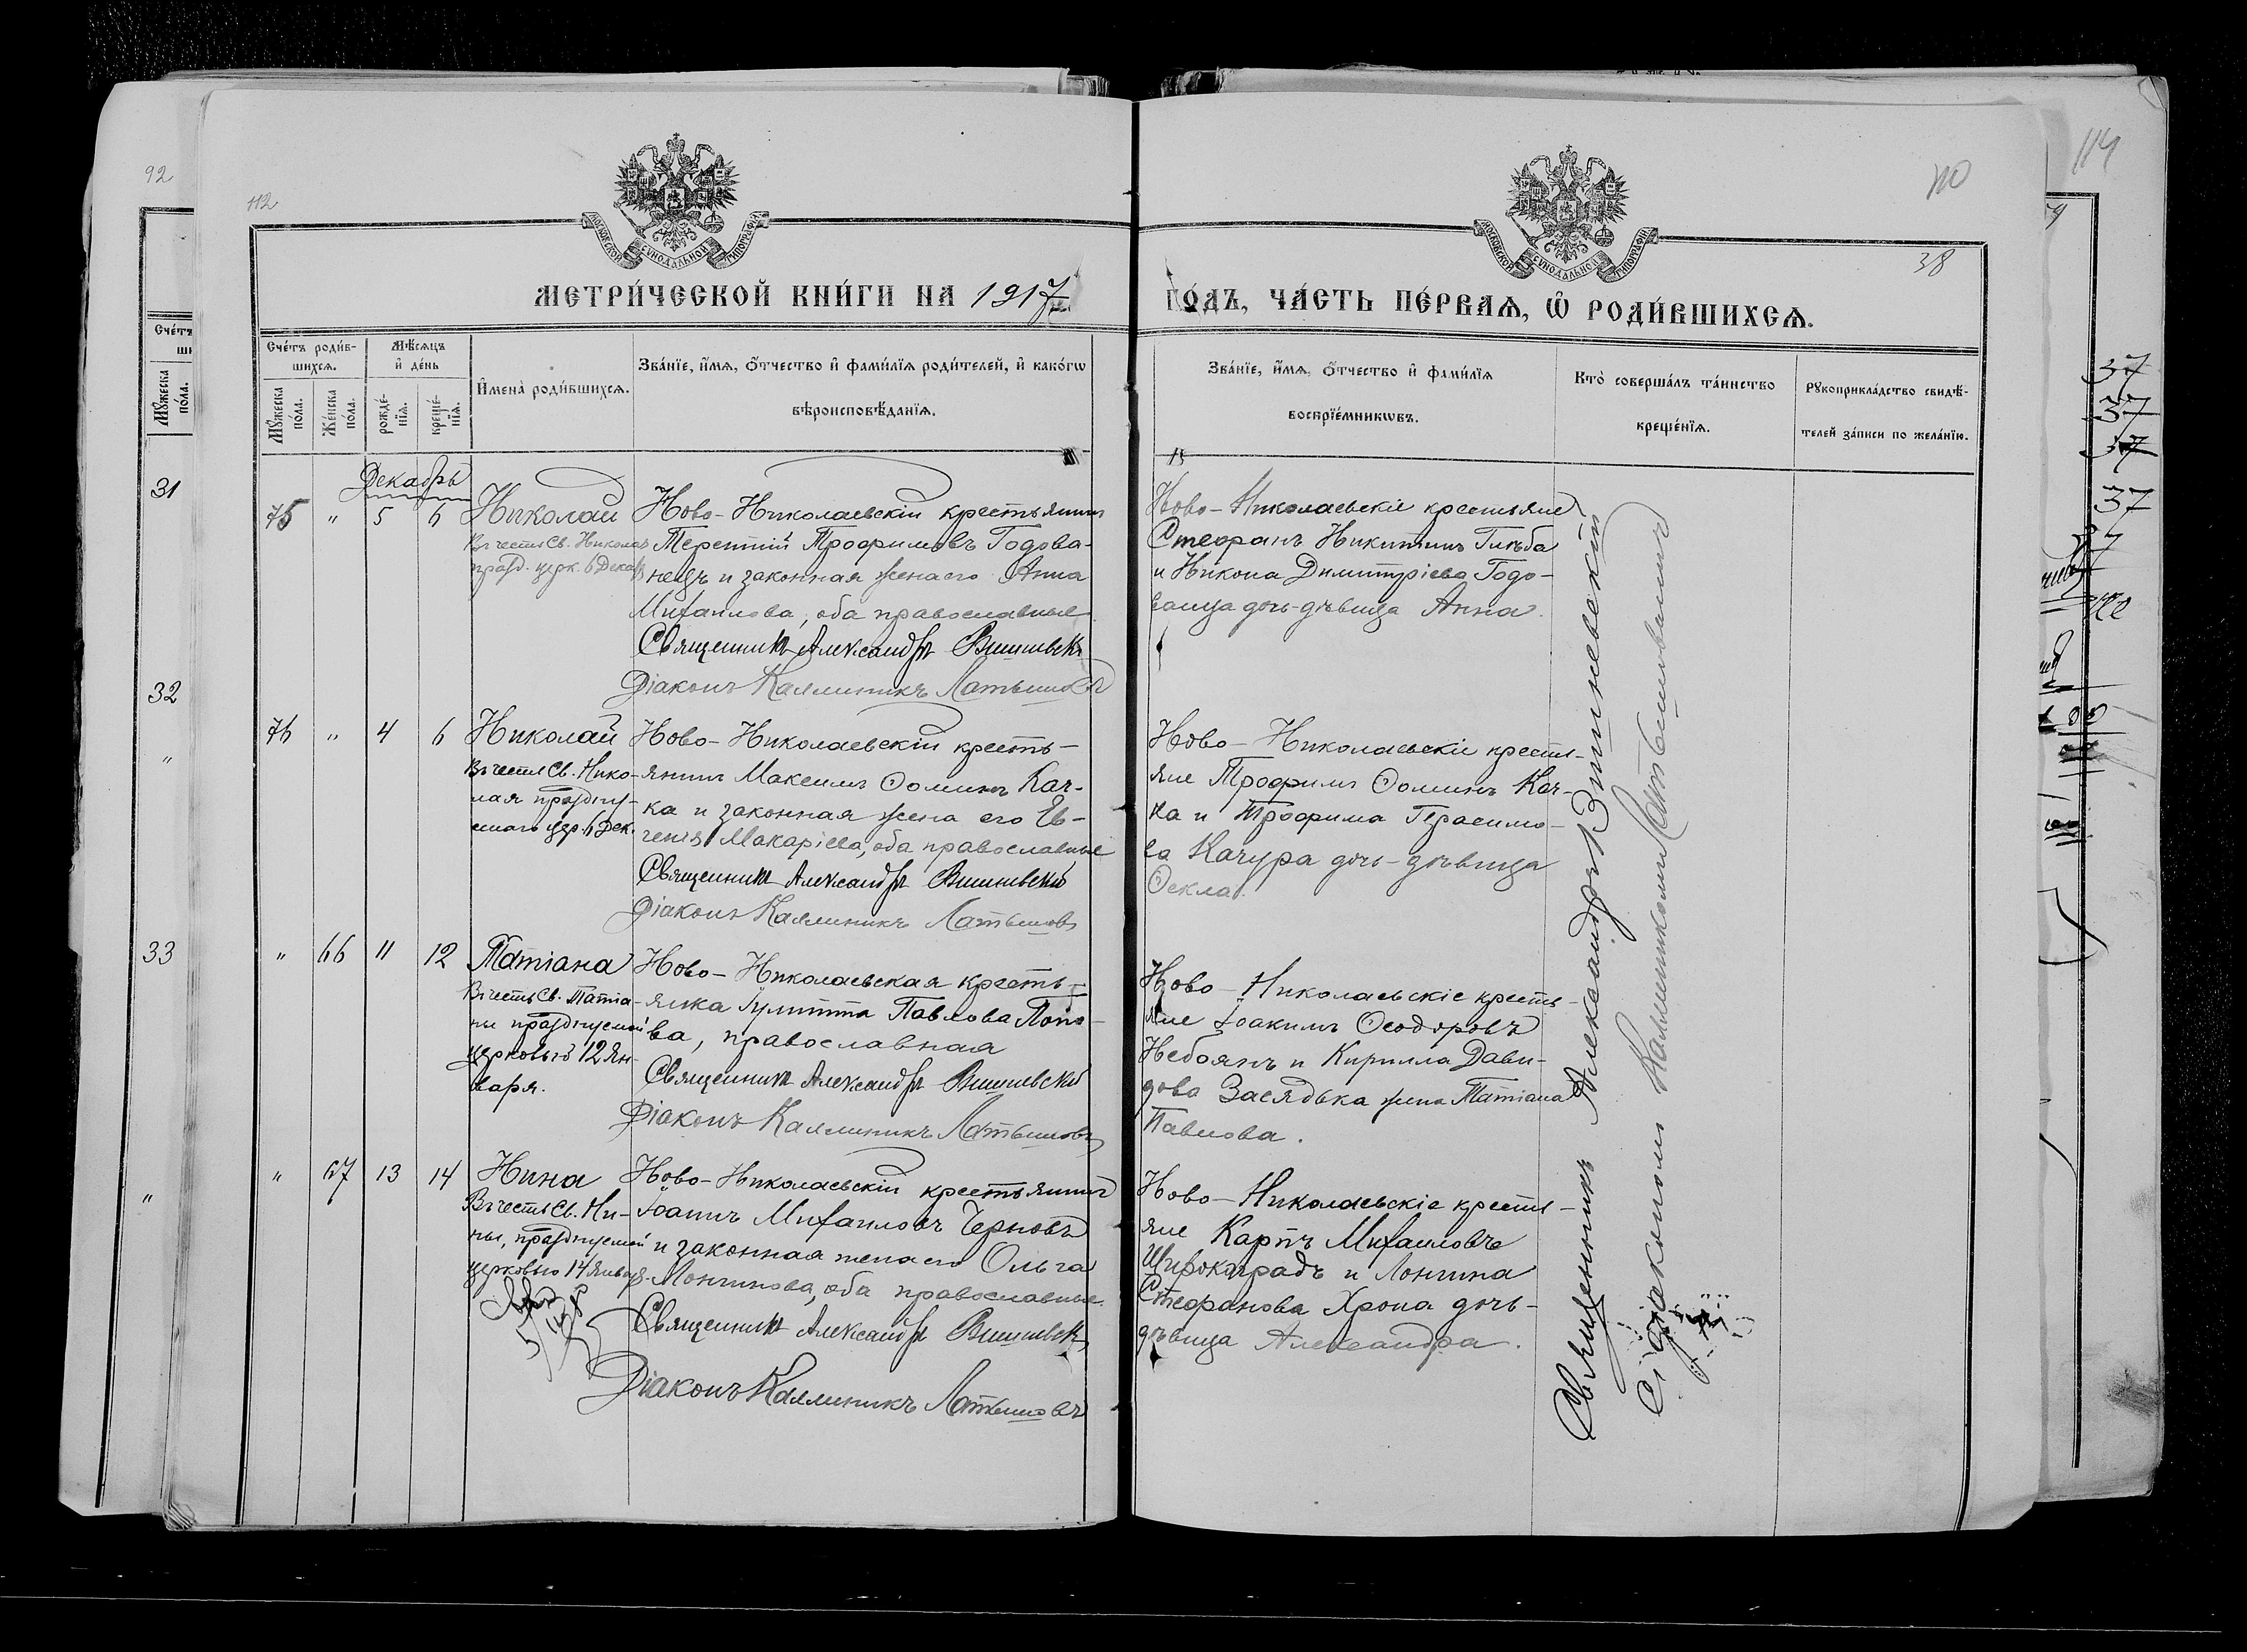 92
112
МОСКОВСКОЙ СѴНОДАЛЬНОЙ ТИПОГРАФІИ
МЕТРИ́ЧЕСКОЙ КНИ́ГИ НА 1917
Сче́тъ роди́в-
шихсѧ.
Мѣ́сѧцъ
и҆ де́нь
Мꙋ́жеска по́ла.
Же́нска по́ла.
рожде́-
нїѧ.
креще́-
нїѧ.
И҆мена̀ роди́вшихсѧ.
Зва́нїе, и҆́мѧ, ѻ҆́тчество и҆ фами́лїѧ роди́телей, и҆ како́гѡ
вѣроисповѣ́данїѧ.
31
32
"
33
"
Декабрь
75 " 5 6 Николай
Въ честь Св. Николая
празд. церк. 6 Декаб.
Ново-Николаевскій крестьянинъ
Терентій Трофимовъ Годова-
нецъ и законная жена его Анна
Михаилова, оба православные
Священникъ Александръ Вишневскі
Діаконъ Каллиникъ Латышовъ
76 " 4 6 Николай
Въ честь Св. Нико-
лая праздну-
емаго цер. 6 Дек.
Ново-Николаевскій кресть-
янинъ Максимъ Ѳоминъ Кач-
ка и законная жена его Ев-
генія Макаріева, оба православные
Священникъ Александръ Вишневскій
Діаконъ Каллиникъ Латышовъ
" 66 11 12 Татіана
Въ честь Св. Татіа-
ны празднуемой
церковью 12 Ян-
варя.
Ново-Николаевская кресть-
янка Іулитта Павлова Попо-
ва, православная
Священникъ Александръ Вишневскій
Діаконъ Каллиникъ Латышовъ
" 67 13 14 Нина
Въ честь Св. Ни-
ны, празднуемой
церковью 14 Января
Ново-Николаевскій крестьянинъ
Іоаннъ Михаиловъ Черновъ
и законная жена его Ольга
Лонгинова, оба православные.
Священникъ Александръ Вишневск
Діаконъ Каллиникъ Латышовъ
МОСКОВСКОЙ СѴНОДАЛЬНОЙ ТИПОГРАФІИ
110
38
ГО́ДЪ, ЧА́СТЬ ПЕ́РВАѦ, Ѡ҆ РОДИ́ВШИХСѦ.
Зва́нїе, и҆́мѧ, ѻ҆́тчество и҆ фами́лїѧ
воспрїе́мникѡвъ.
Кто̀ соверша́лъ та́инство
креще́нїѧ.
Рꙋкоприкла́дство свидѣ́-
телей за́писи по жела́нїю.
Ново-Николаевскіе крестьяне
Стефанъ Никитинъ Глѣба
и Никона Димитріева Годо-
ванца дочь-дѣвица Анна.
Ново-Николаевскіе кресть-
яне Трофимъ Ѳоминъ Кач-
ка и Трофима Герасимо-
ва Качура дочь-дѣвица
Ѳекла.
Ново-Николаевскіе кресть-
яне Іоакимъ Ѳеодоровъ
Небоянъ и Кирилла Дави-
дова Засядька жена Татіана
Павлова.
Ново-Николаевскіе кресть-
яне Карпъ Михаиловъ
Широкоградъ и Лонгина
Стефанова Хрона дочь-
дѣвица Александра.
Священникъ Александръ Вишневскій
съ діакономъ Каллиникомъ Латышовымъ
114
37
37
37
37